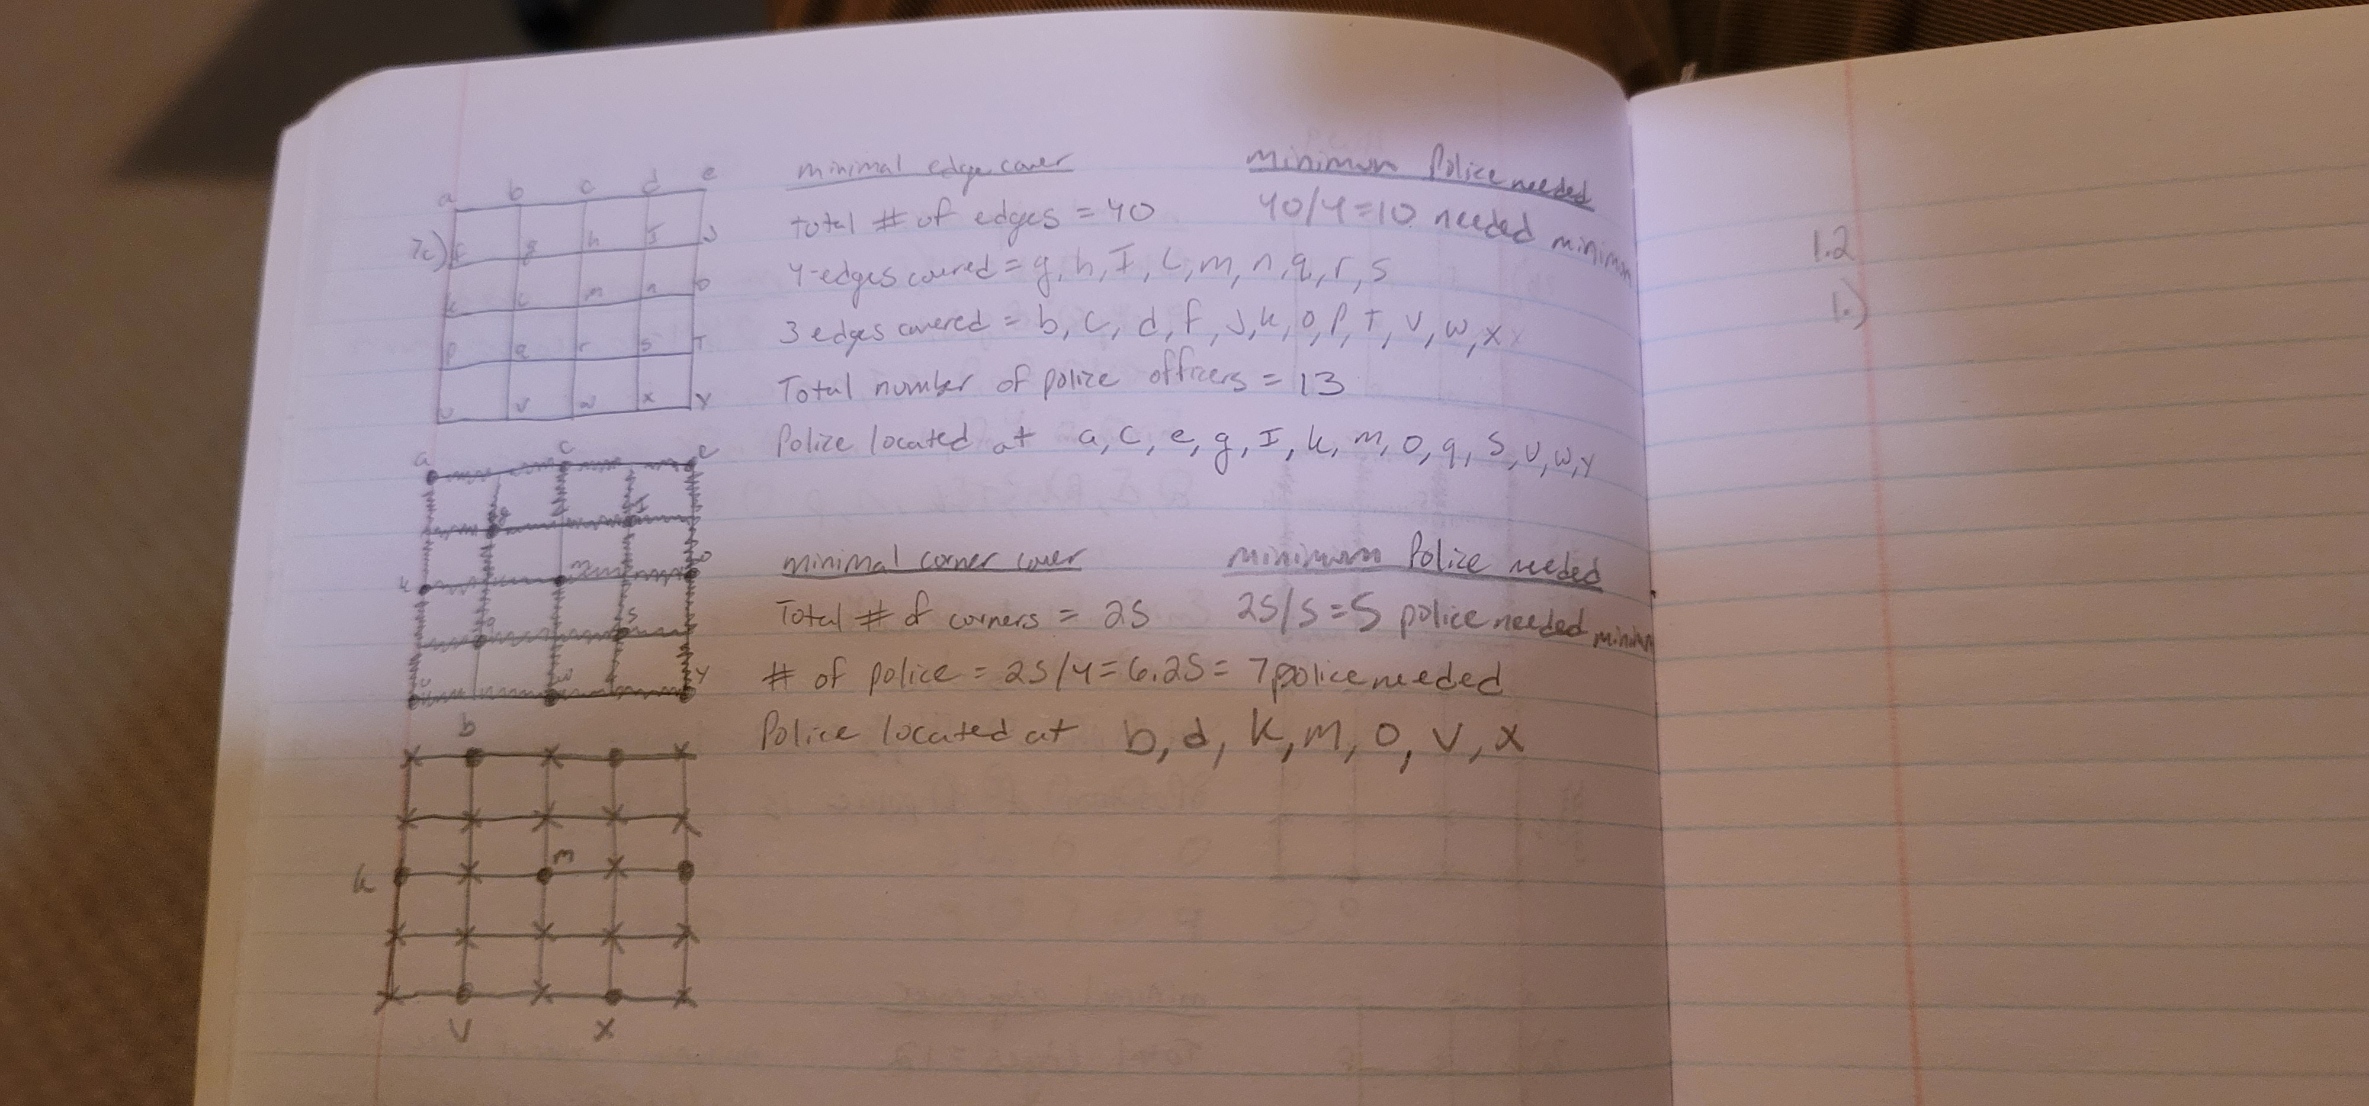 a b c d e
7c) f g h I J
k L m n o
p q r s T
U V w x y
minimal edge cover
total # of edges = 40
4-edges covered = g, h, I, L, m, n, q, r, s
3 edges covered = b, c, d, f, J, k, o, p, T, v, w, x
Total number of polize officers = 13
Polize located at a, c, e, g, I, k, m, o, q, s, u, w, y
minimum Police needed
40/4=10 needed minimum
a c e
g I
k m o
q s
u w y
minimal corner cover
Total # of corners = 25
# of police = 25/4=6.25= 7 police needed
Police located at b, d, k, m, o, v, x
minimum Police needed
25/5=5 police needed minimum
b
k m
V X
1.2
1.)